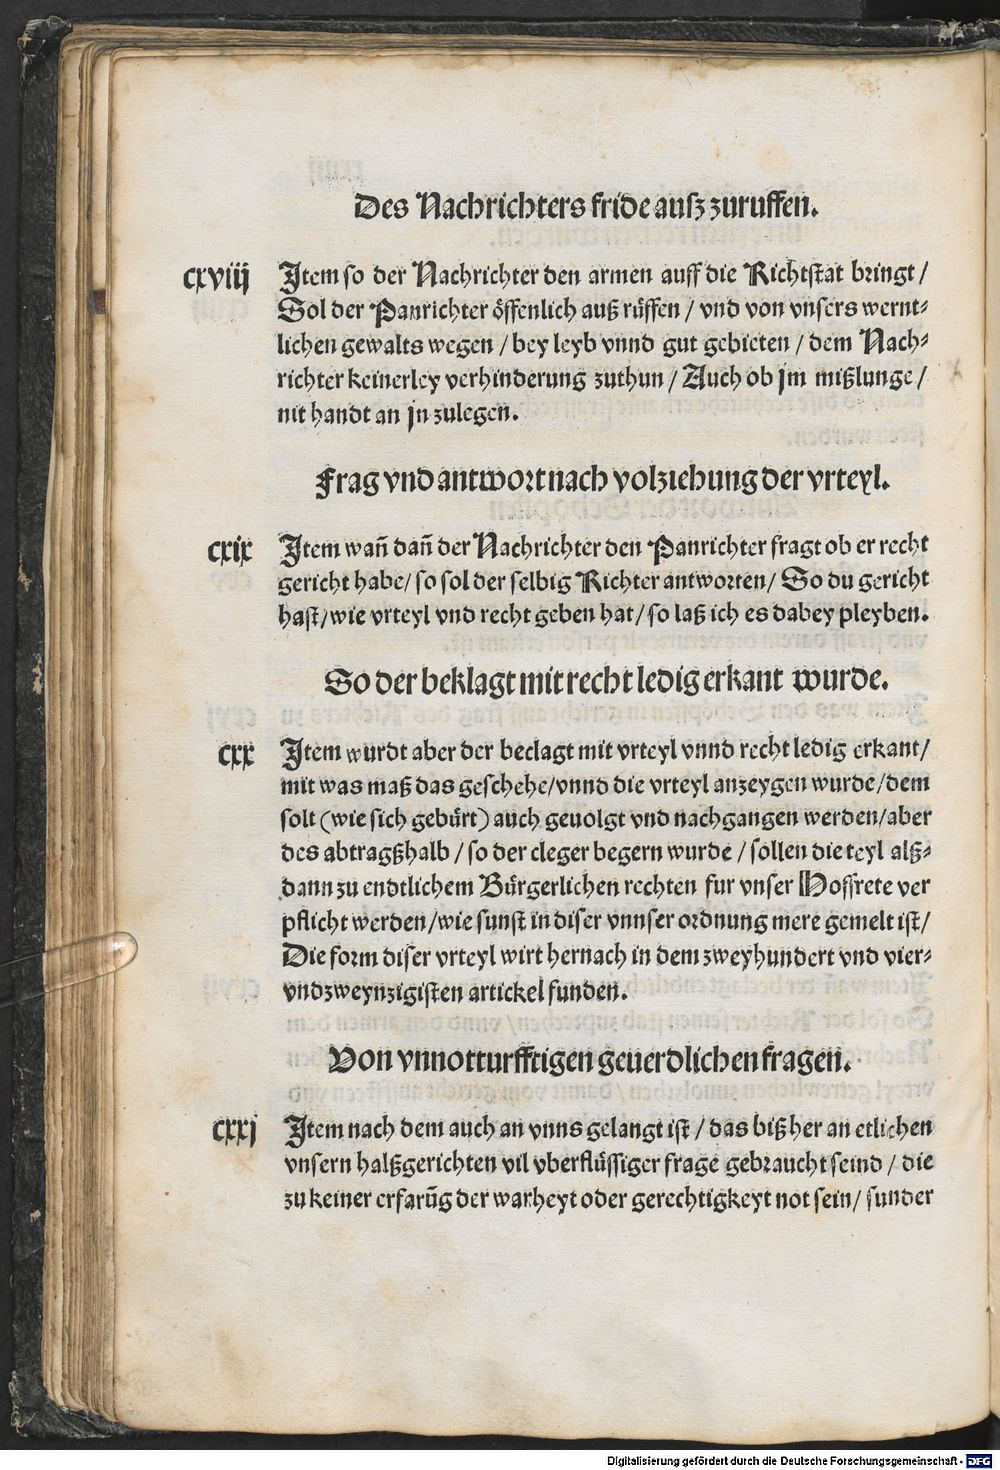 Des Nachrichters fride ausz zuruffen.
cxviij Item so der Nachrichter den armen auff die Richtstat bringt /
Sol der Panrichter öffenlich auß rüffen / vnd von vnsers wernt⸗
lichen gewalts wegen / bey leyb vnnd gut gebieten / dem Nach⸗
richter keinerley verhinderung zuthun / Auch ob jm mißlunge /
nit handt an jn zulegen.
Frag vnd antwort nach volziehung der vrteyl.
cxix Item wañ dañ der Nachrichter den Panrichter fragt ob er recht
gericht habe / so sol der selbig Richter antworten / So du gericht
hast / wie vrteyl vnd recht geben hat / so laß ich es dabey pleyben.
So der beklagt mit recht ledig erkant wurde.
cxx Item wurdt aber der beclagt mit vrteyl vnnd recht ledig erkant /
mit was maß das geschehe / vnnd die vrteyl anzeygen wurde / dem
solt (wie sich gebürt) auch geuolgt vnd nachgangen werden / aber
des abtragßhalb / so der cleger begern wurde / sollen die teyl alß⸗
dann zu endtlichem Bürgerlichen rechten fur vnser Hoffrete ver
pflicht werden / wie sunst in diser vnnser ordnung mere gemelt ist /
Die form diser vrteyl wirt hernach in dem zweyhundert vnd vier⸗
vndzweynzigisten artickel funden.
Von vnnotturfftigen geuerdlichen fragen.
cxxj Item nach dem auch an vnns gelangt ist / das bißher an etlichen
vnsern halßgerichten vil vberflüssiger frage gebraucht seind / die
zu keiner erfarũg der warheyt oder gerechtigkeyt not sein / sunder
Digitalisierung gefördert durch die Deutsche Forschungsgemeinschaft - DFG